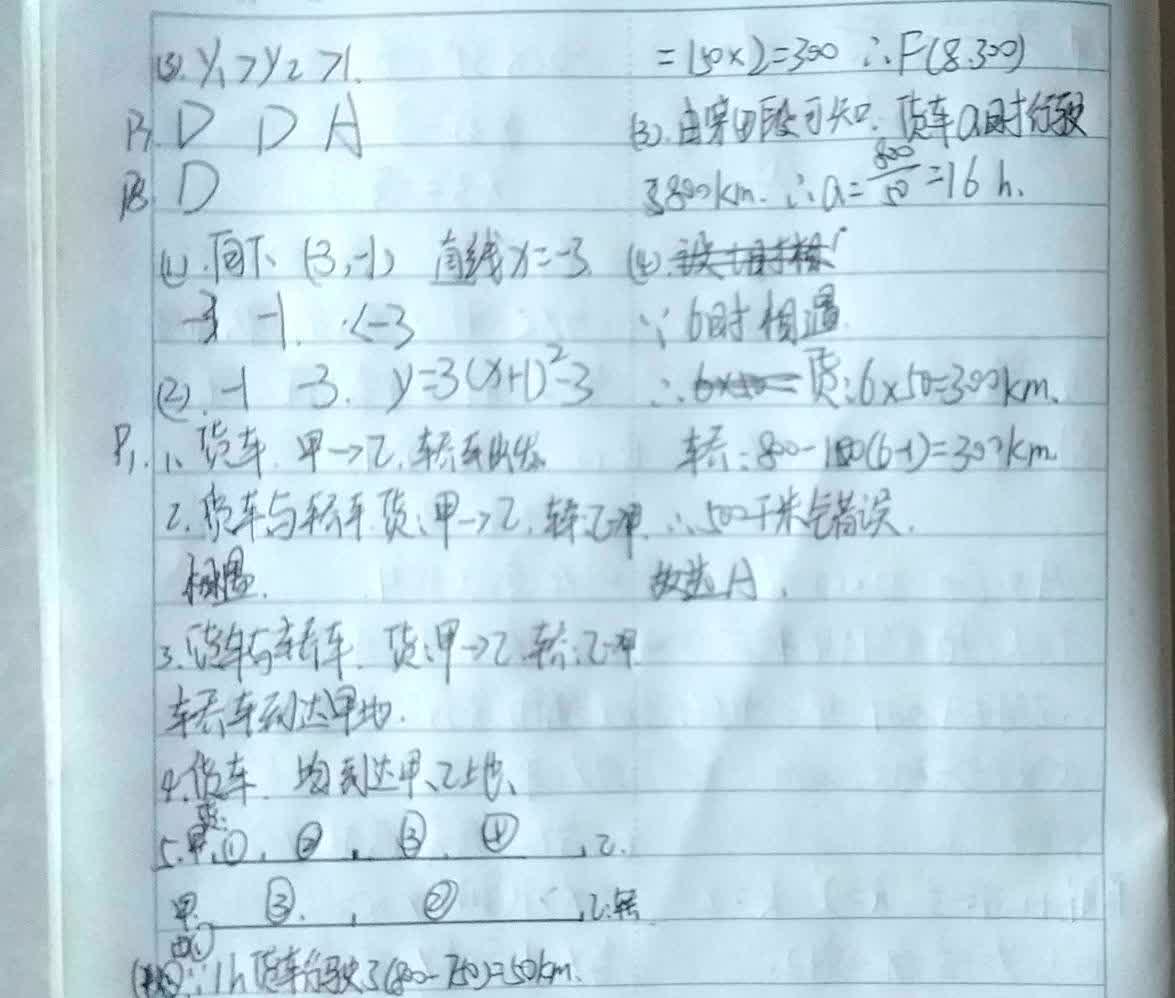 (3). y₁>y₂>1.
D D A
D
(1).向下、(3,-1) 直线x=-3
-3 -1. <-3
(2). -1 -3. y=3(x+1)²-3
P₁. 1、货车. 甲→乙. 轿车出发
2.货车与轿车.货:甲→乙.轿:乙→甲.
相遇.
3.货车与轿车. 货:甲→乙.轿:乙→甲
轿车到达甲地.
4.货车. 均到达甲、乙地、
货:
5.甲.①. ② . ③. ④ ,乙.
甲. ③. , ② ,乙:轿
由①
∵1h货车行驶了(800-750)=50km.
=150×2=300 ∴F(8.300)
(3).由第四段可知.货车a时行驶
了800km. ∴a=800/50=16 h.
(4).
∵6时相遇
∴ 货:6×50=300km.
轿:800-100(6-1)=300km.
∴500千米错误.
故选A.